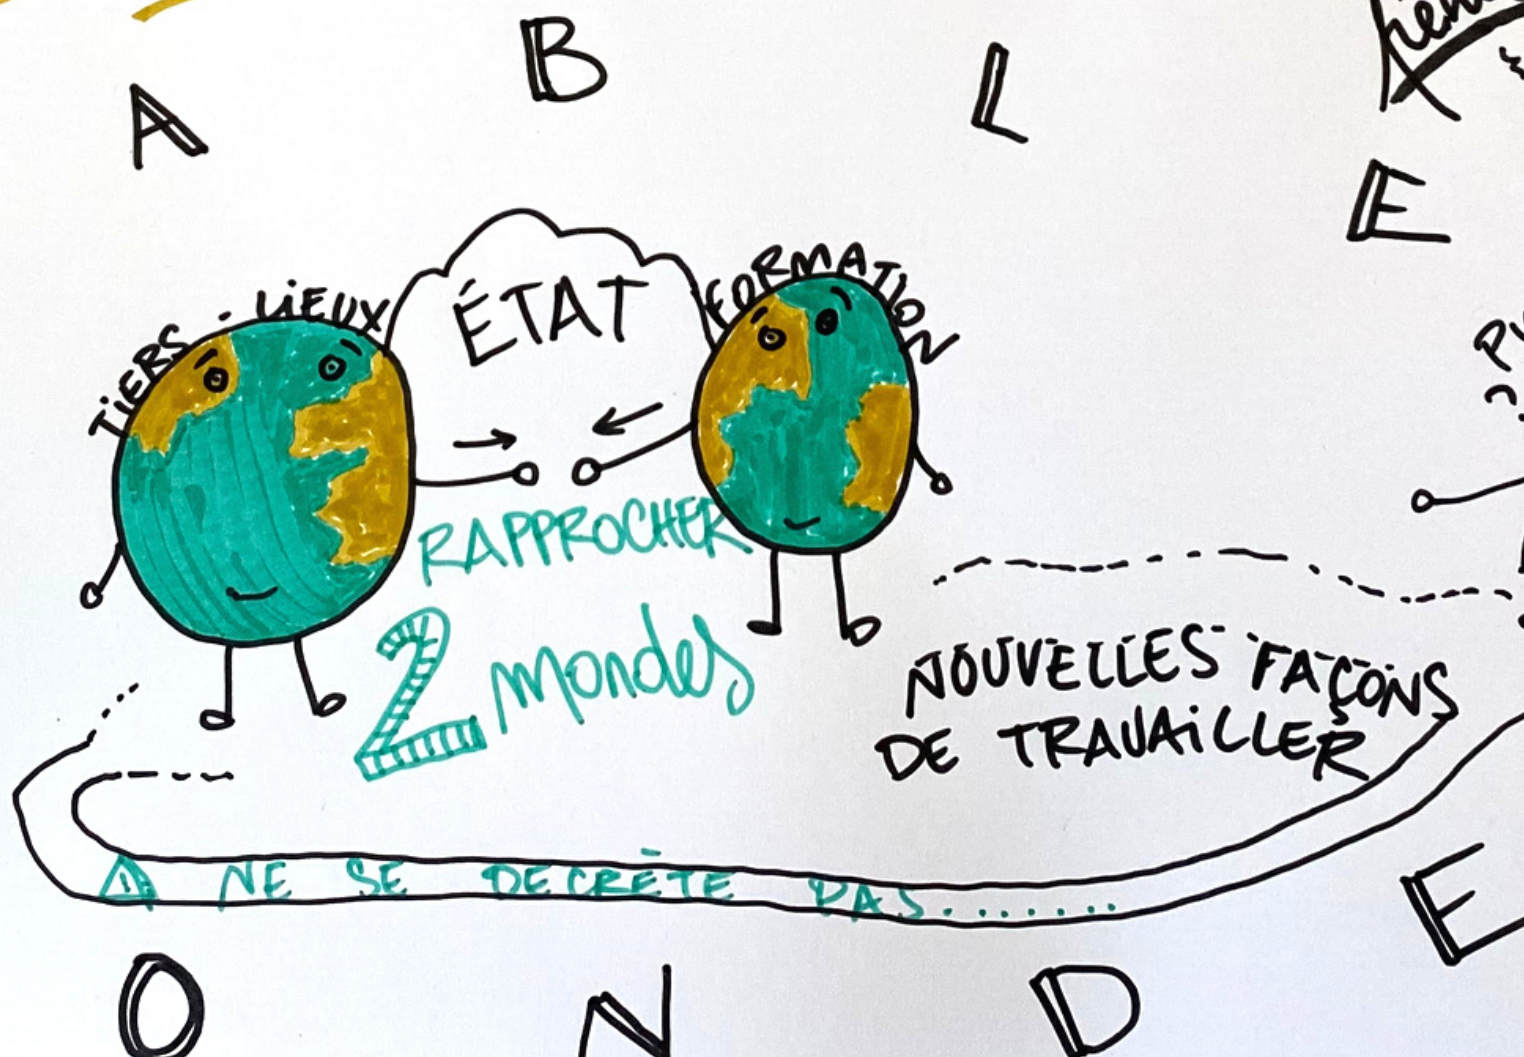 A B L E
TIERS-LIEUX
ÉTAT
FORMATION
RAPPROCHER
2 mondes
NOUVELLES FAÇONS
DE TRAVAILLER
NE SE DECRÈTE PAS.......
O N D E